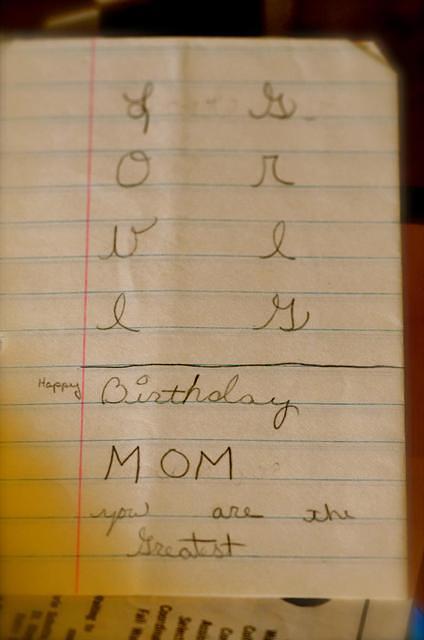 L G
O r
V e
e G
Happy Birthday
MOM
you are the
Greatest